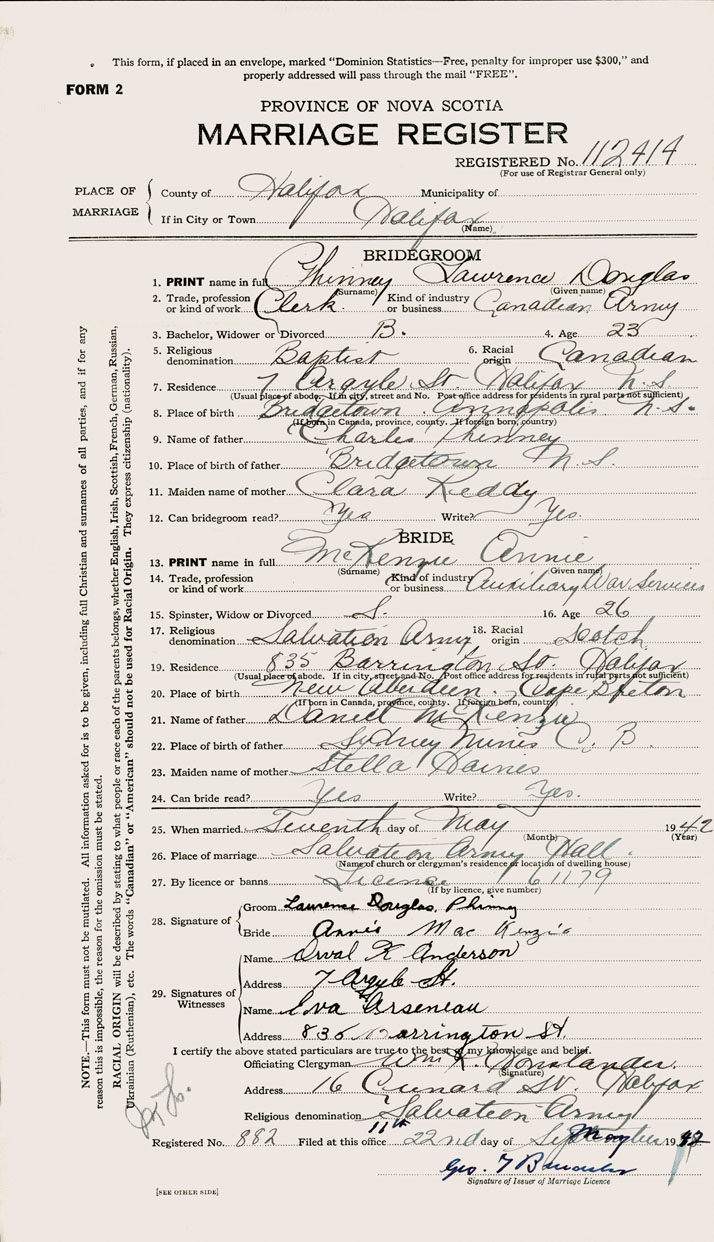 This form, if placed in an envelope, marked "Dominion Statistics—Free, penalty for improper use $300," and
properly addressed will pass through the mail "FREE".
FORM 2
PROVINCE OF NOVA SCOTIA
MARRIAGE REGISTER
REGISTERED No. 112414
(For use of Registrar General only)
PLACE OF MARRIAGE
County of Halifax Municipality of
If in City or Town Halifax
(Name)
BRIDEGROOM
1. PRINT name in full Phinney Lawrence Douglas
(Surname) (Given name)
2. Trade, profession or kind of work Clerk. Kind of industry or business Canadian Army
3. Bachelor, Widower or Divorced B. 4. Age 23
5. Religious denomination Baptist 6. Racial origin Canadian
7. Residence 7 Argyle St. Halifax N.S.
(Usual place of abode. If in city, street and No. Post office address for residents in rural parts not sufficient)
8. Place of birth Bridgetown. Annapolis N.S.
(If born in Canada, province, county. If foreign born, country)
9. Name of father Charles Phinney
10. Place of birth of father Bridgetown N.S.
11. Maiden name of mother Clara Reddy
12. Can bridegroom read? Yes Write? Yes.
BRIDE
13. PRINT name in full McKenzie Annie
(Surname) (Given name)
14. Trade, profession or kind of work Kind of industry or business Auxiliary War Services
15. Spinster, Widow or Divorced S. 16. Age 26
17. Religious denomination Salvation Army 18. Racial origin Scotch
19. Residence 835 Barrington St. Halifax
(Usual place of abode. If in city, street and No. Post office address for residents in rural parts not sufficient)
20. Place of birth New Aberdeen. Cape Breton
(If born in Canada, province, county. If foreign born, country)
21. Name of father Daniel McKenzie
22. Place of birth of father Sydney Mines C. B.
23. Maiden name of mother Stella Haines
24. Can bride read? Yes Write? Yes.
25. When married Seventh day of May 1942
(Month) (Year)
26. Place of marriage Salvation Army Hall.
(Name of church or clergyman's residence or location of dwelling house)
27. By licence or banns Licence 61179
(If by licence, give number)
28. Signature of
Groom Lawrence Douglas Phinney
Bride Annie Mac Kenzie
29. Signatures of Witnesses
Name Orval K Anderson
Address 7 Argyle St.
Name Eva Arseneau
Address 836 Barrington St.
I certify the above stated particulars are true to the best of my knowledge and belief.
Officiating Clergyman Wm K.
(Signature)
Address 16 Cunard St. Halifax
Religious denomination Salvation Army
Registered No. 882 Filed at this office 11th 22nd day of May 1942
Geo. T
Signature of Issuer of Marriage Licence
[SEE OTHER SIDE]
NOTE.—This form must not be mutilated. All information asked for is to be given, including full Christian and surnames of all parties, and if for any
reason this is impossible, the reason for the omission must be stated.
RACIAL ORIGIN will be described by stating to what people or race each of the parents belongs, whether English, Irish, Scottish, French, German, Russian,
Ukrainian (Ruthenian), etc. The words "Canadian" or "American" should not be used for Racial Origin. They express citizenship (nationality).